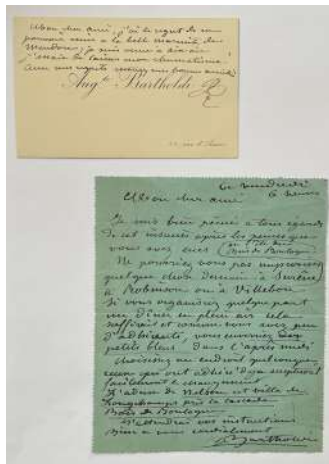 Mon cher ami, j'ai le regret de ne
pouvoir venir à la belle marmite de
Meudon; je suis venu à Aix où
j'essaie de laisser mon rhumatisme.
Avec mes regrets recevez mes bonnes amitiés
Aug^te Bartholdi
Ce vendredi
6 heures
Mon cher ami
Je suis bien peiné à tous égards
de cet insuccès après les peines que
vous avez eues
Bois de Boulogne
Ne pourriez vous pas improviser
quelque chose demain à Surène
à Robinson ou à Villebon
Si vous organisez quelque part
un dîner en plein air cela
suffirait et comme vous avez peu
d'adhérents, vous enverriez des
petits bleus dans l'après midi
Choisissez un endroit quelconque
ceux qui ont adhéré déjà accepteront
facilement le changement
L'adresse de Nelson est villa de
Longchamps près la cascade
Bois de Boulogne
J'attendrai vos instructions
Bien à vous cordialement
Bartholdi